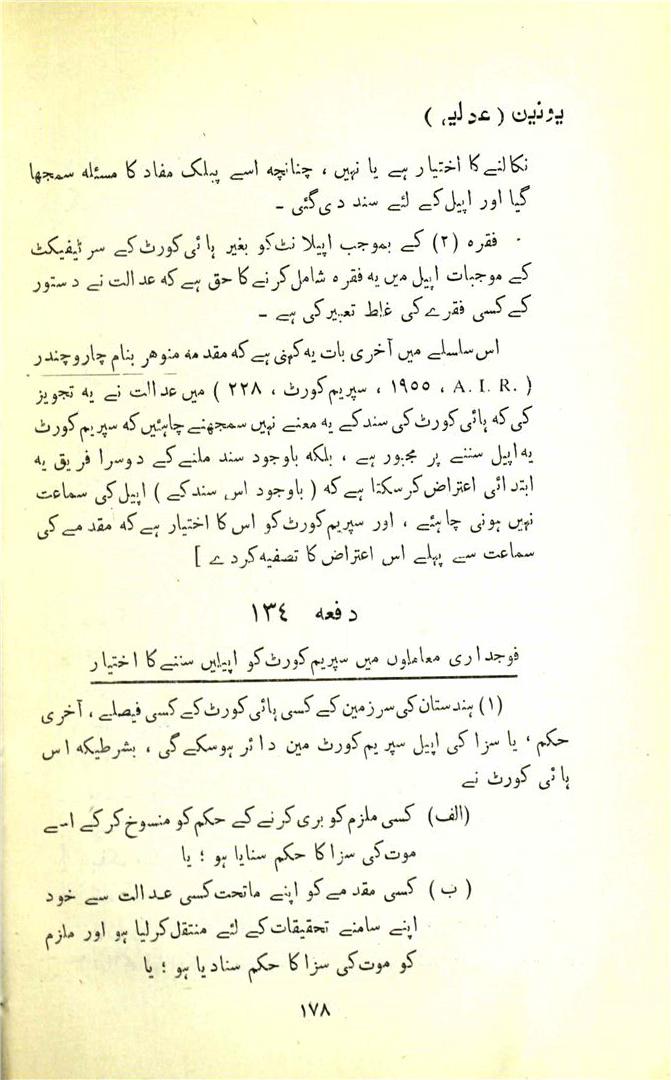 یونین (عدلیہ)
نکالنے کا اختیار ہے یا نہیں ، چنانچہ اسے پبلک مفاد کا مسئلہ سمجھا
گیا اور اپیل کے لئے سند دی گئی ۔
فقرہ (۲) کے بموجب اپیلانٹ کو بغیر ہائی کورٹ کے سرٹیفیکٹ
کے موجبات اپیل میں یہ فقرہ شامل کرنے کا حق ہے کہ عدالت نے دستور
کے کسی فقرے کی غلط تعبیر کی ہے ۔
اس سلسلے میں آخری بات یہ کہنی ہے کہ مقدمہ منوهر بنام چاروچندر
( A. I. R. ، ۱۹۵۵ ، سپریم کورٹ ، ۲۲۸ ) میں عدالت نے یہ تجویز
کی کہ ہائی کورٹ کی سند کے یہ معنے نہیں سمجھنے چاہئیں کہ سپریم کورٹ
یہ اپیل سننے پر مجبور ہے ، بلکہ باوجود سند ملنے کے دوسرا فریق یہ
ابتدائی اعتراض کرسکتا ہے کہ ( باوجود اس سند کے ) اپیل کی سماعت
نہیں ہونی چاہئے ، اور سپریم کورٹ کو اس کا اختیار ہے کہ مقدمے کی
سماعت سے پہلے اس اعتراض کا تصفیہ کردے ]
دفعہ ۱۳٤
فوجداری معاملوں میں سپریم کورٹ کو اپیلیں سننے کا اختیار
(۱) ہندستان کی سرزمین کے کسی ہائی کورٹ کے کسی فیصلے ، آخری
حکم ، یا سزا کی اپیل سپریم کورٹ مین دائر ہوسکے گی ، بشرطیکہ اس
ہائی کورٹ نے
(الف) کسی ملزم کو بری کرنے کے حکم کو منسوخ کرکے اسے
موت کی سزا کا حکم سنایا ہو ؛ یا
(ب) کسی مقدمے کو اپنے ماتحت کسی عدالت سے خود
اپنے سامنے تحقیقات کے لئے منتقل کرلیا ہو اور ملزم
کو موت کی سزا کا حکم سنادیا ہو ؛ یا
۱۷۸